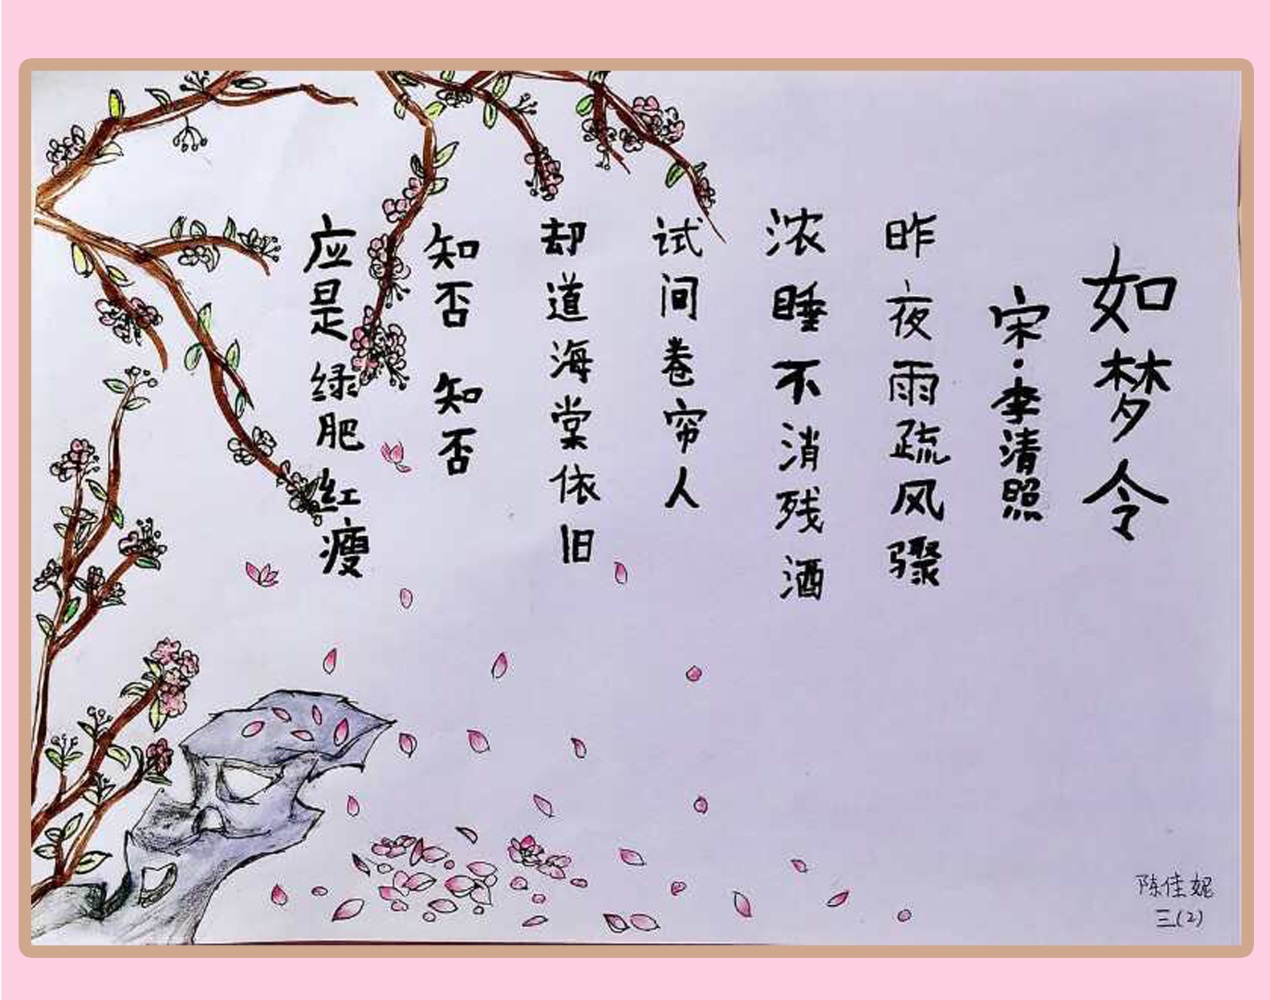 如梦令
宋·李清照
昨夜雨疏风骤
浓睡不消残酒
试问卷帘人
却道海棠依旧
知否 知否
应是绿肥红瘦
陈佳妮
三(2)